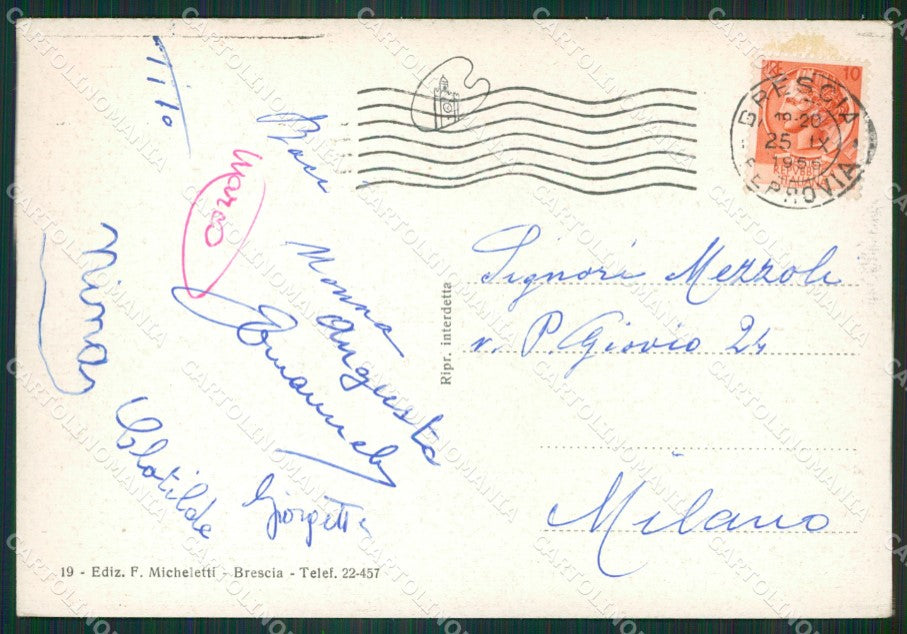 Tito
Baci
Marco
Nonna
Augusta
Emanuela
Nima
Clotilde
Giorgetta
10
BRESCIA
18-20
25 IX
1956
FERROVIA
Signori Mezzoli
v. P. Giovio 24
Milano
Ripr. interdetta
19 - Ediz. F. Micheletti - Brescia - Telef. 22-457
CARTOLINOMANIA